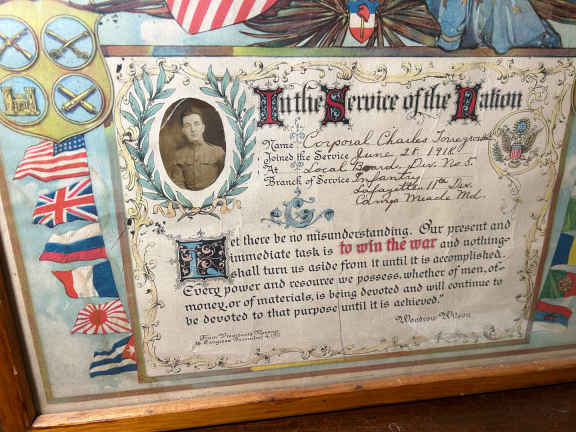 In the Service of the Nation
Name Corporal Charles
Joined the Service June 25, 1918.
At Local Board, Div. No. 5.
Branch of Service Infantry
Lafayette 11th Div.
Camp Meade Md.
Let there be no misunderstanding. Our present and
immediate task is to win the war and nothing
shall turn us aside from it until it is accomplished.
Every power and resource we possess, whether of men, of
money, or of materials, is being devoted and will continue to
be devoted to that purpose until it is achieved."
Woodrow Wilson
From President's Message
to Congress December 4, 1917